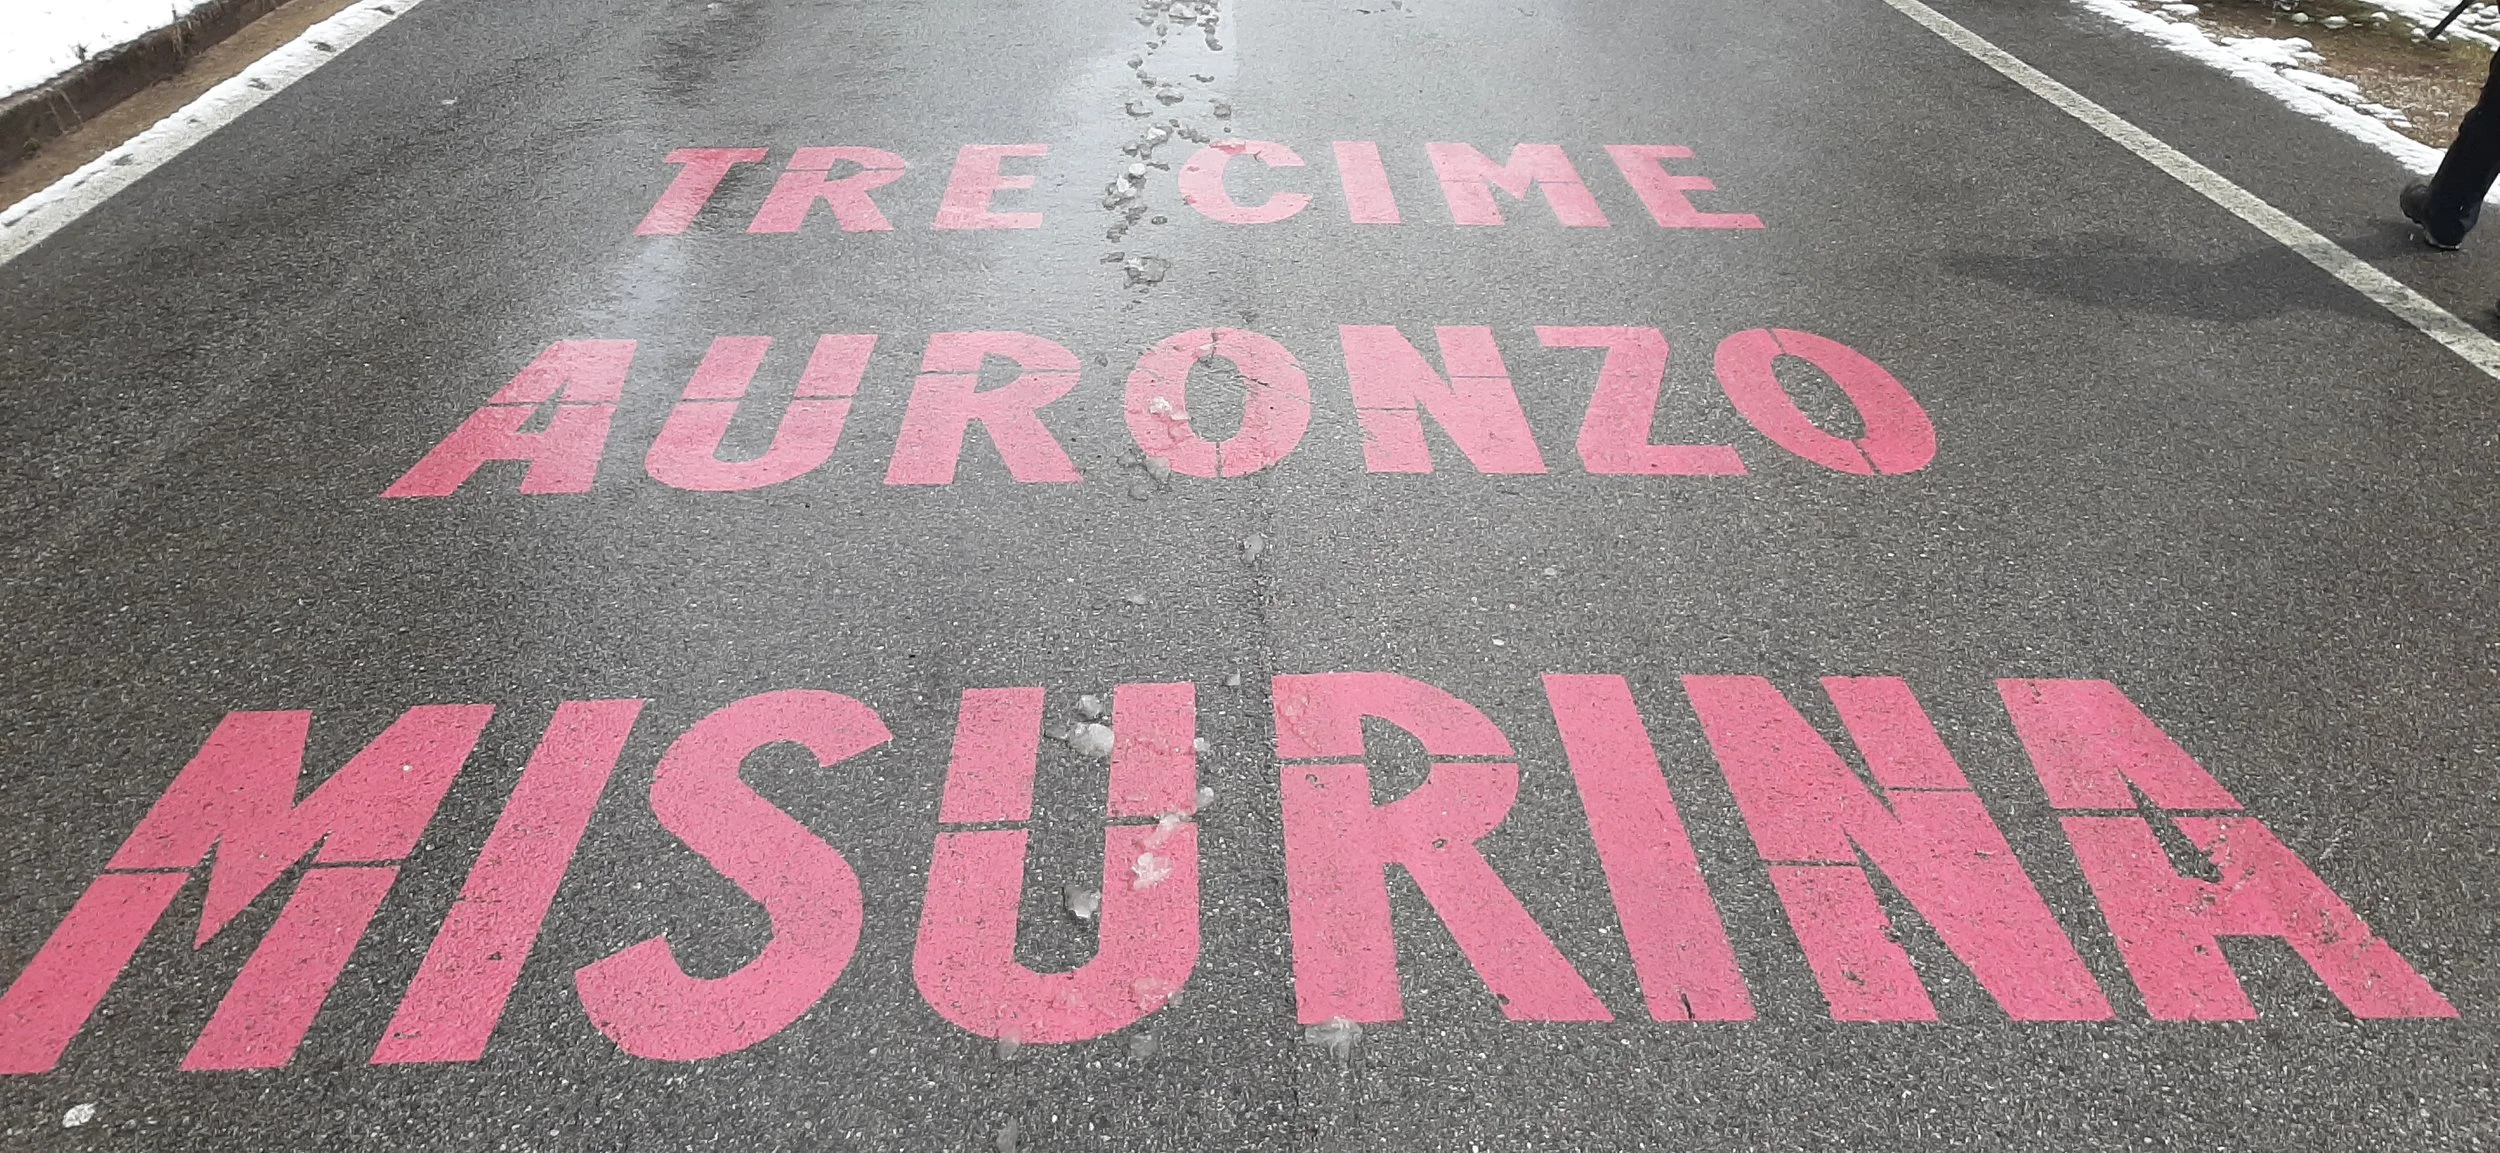 TRE CIME
AURONZO
MISURINA